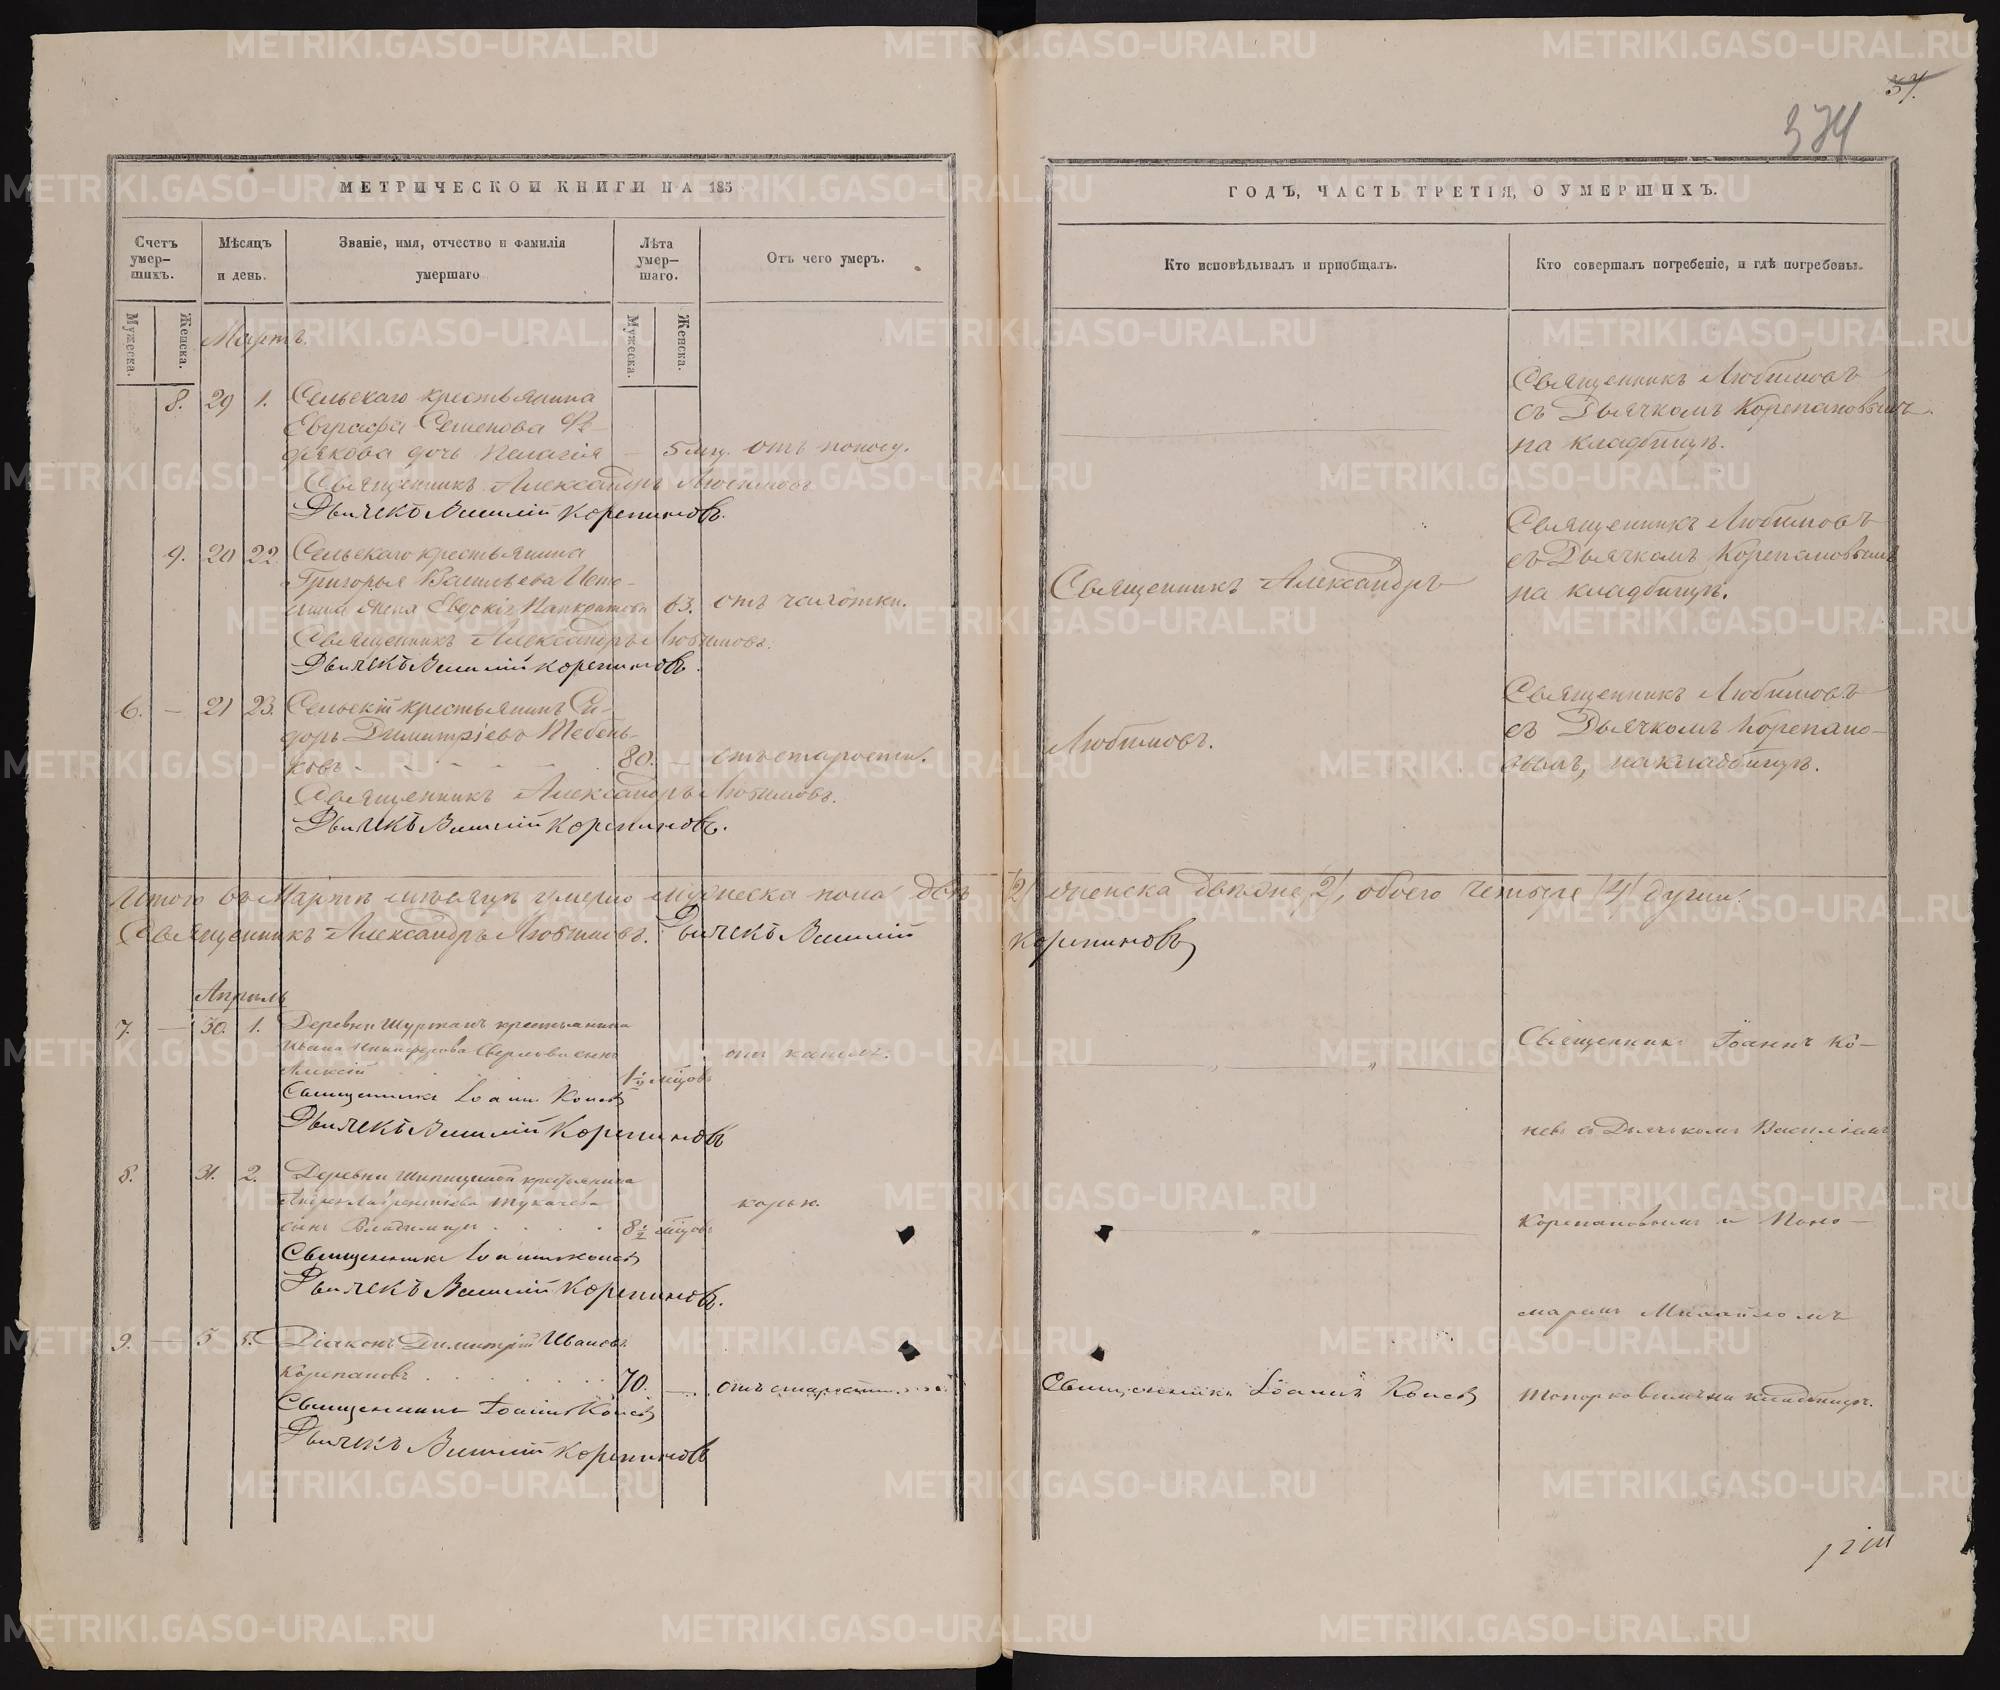 37.
374
МЕТРИЧЕСКОЙ КНИГИ НА 185
Счетъ умер-шихъ.
Мѣсяцъ и день.
Званіе, имя, отчество и фамилія умершаго
Лѣта умер-шаго.
Отъ чего умеръ.
Мужеска.
Женска.
Мужеска.
Женска.
Мартъ.
8. 29 1. Сельскаго крестьянина
Евграфа Семенова
дочь Пелагія — 5 мц. отъ поносу.
Священникъ Александръ Любимовъ.
Дьячекъ Василій Корепановъ.
9. 20 22. Сельскаго крестьянина
Григорья Васильева
жена Евдокія Панкратова 63. отъ чахотки.
Священникъ Александръ Любимовъ.
Дьячекъ Василій Корепановъ.
6. — 21 23. Сельскій крестьянинъ Си-
доръ Димитріевъ Тебень-
ковъ - - - - - 80. — отъ старости.
Священникъ Александръ Любимовъ.
Дьячекъ Василій Корепановъ.
Итого въ Мартѣ мѣсяцѣ умерло мужеска пола двѣ
Священникъ Александръ Любимовъ. Дьячекъ Василій
Апрель
7. — 30. 1. Деревни крестьянина
Ивана сынъ
Алексій 1½ мцовъ
Священникъ Іоаннъ Коневъ
Дьячекъ Василій Корепановъ
8. 31. 2. Деревни Шипицыной крестьянина
Андрея Лаврентьева Тукачева корью.
сынъ Владимиръ 8½ мцовъ
Священникъ Іоаннъ Коневъ
Дьячекъ Василій Корепановъ.
9. — 5 5. Діаконъ Димитрій Ивановъ
Корепановъ 70. — отъ старости
Священникъ Іоаннъ Коневъ
Дьячекъ Василій Корепановъ
ГОДЪ, ЧАСТЬ ТРЕТІЯ, О УМЕРШИХЪ.
Кто исповѣдывалъ и пріобщалъ.
Кто совершалъ погребеніе, и гдѣ погребены.
Священникъ Любимовъ
съ Дьячкомъ Корепановымъ
на кладбищѣ.
Священникъ Любимовъ
съ Дьячкомъ Корепановымъ
Священникъ Александръ
на кладбищѣ.
Священникъ Любимовъ
съ Дьячкомъ Корепано-
Любимовъ.
вымъ, на кладбищѣ.
/2/ женска двѣ /2/, обоего четыре /4/ души.
Корепановъ
Священникъ Іоаннъ Ко-
невъ съ Дьячкомъ Василіемъ
Корепановымъ и Поно-
маремъ Михайломъ
Священникъ Іоаннъ Коневъ
Топорковымъ на кладбищѣ.
METRIKI.GASO-URAL.RU